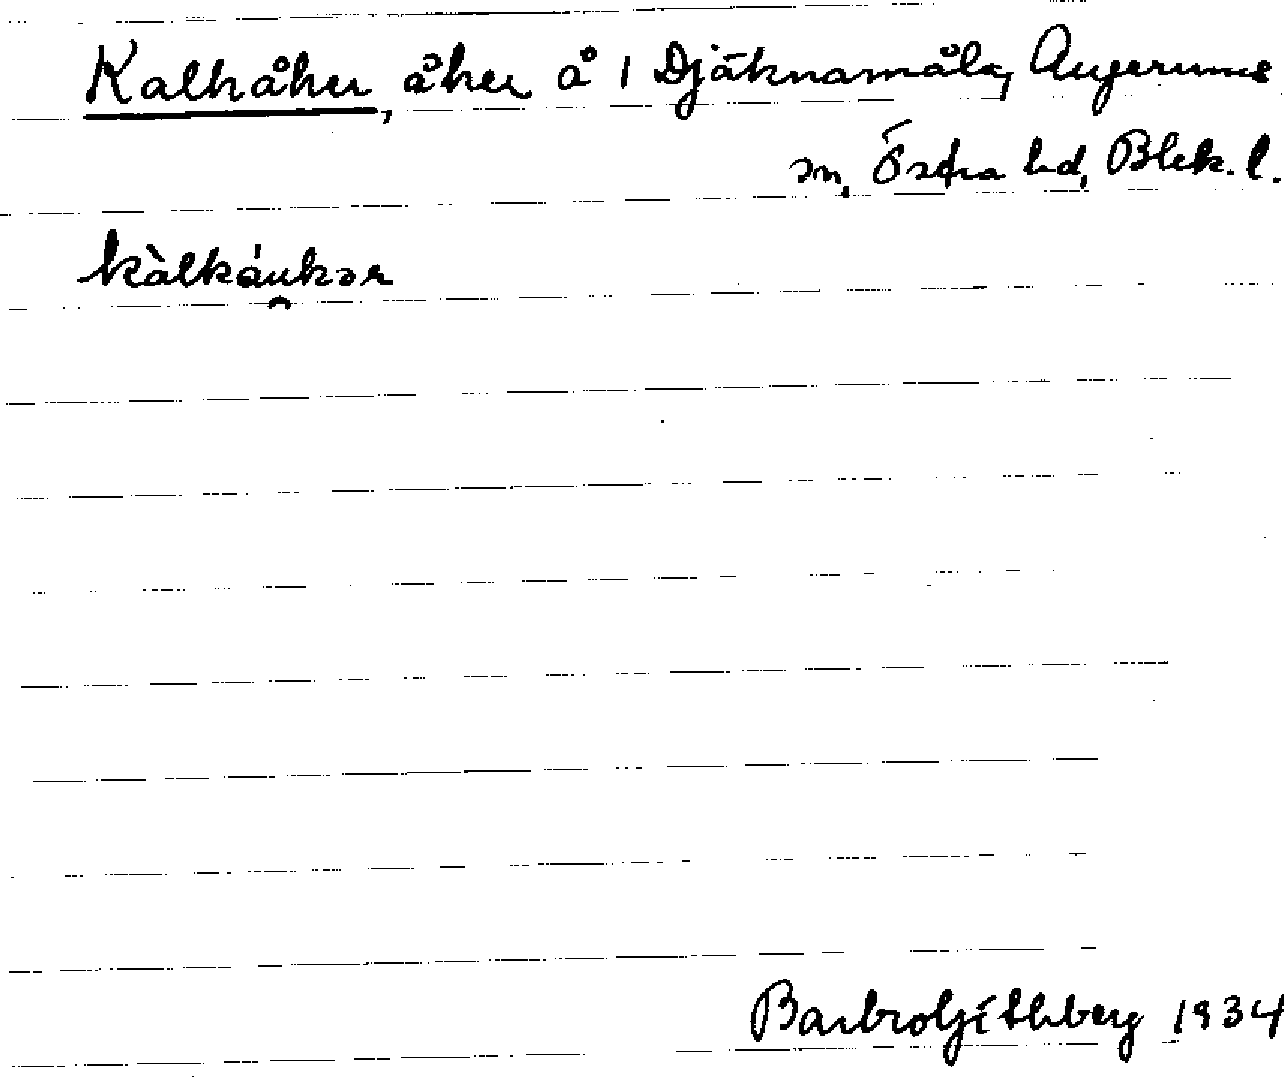 Kalkåker, åker å 1 Djäknamåla, Augerums
sn, Östra hd, Blek. l.
kàlkáu̯kər
Barbro Göthberg 1934